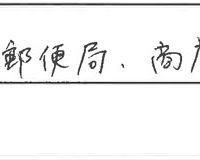 郵便局、商